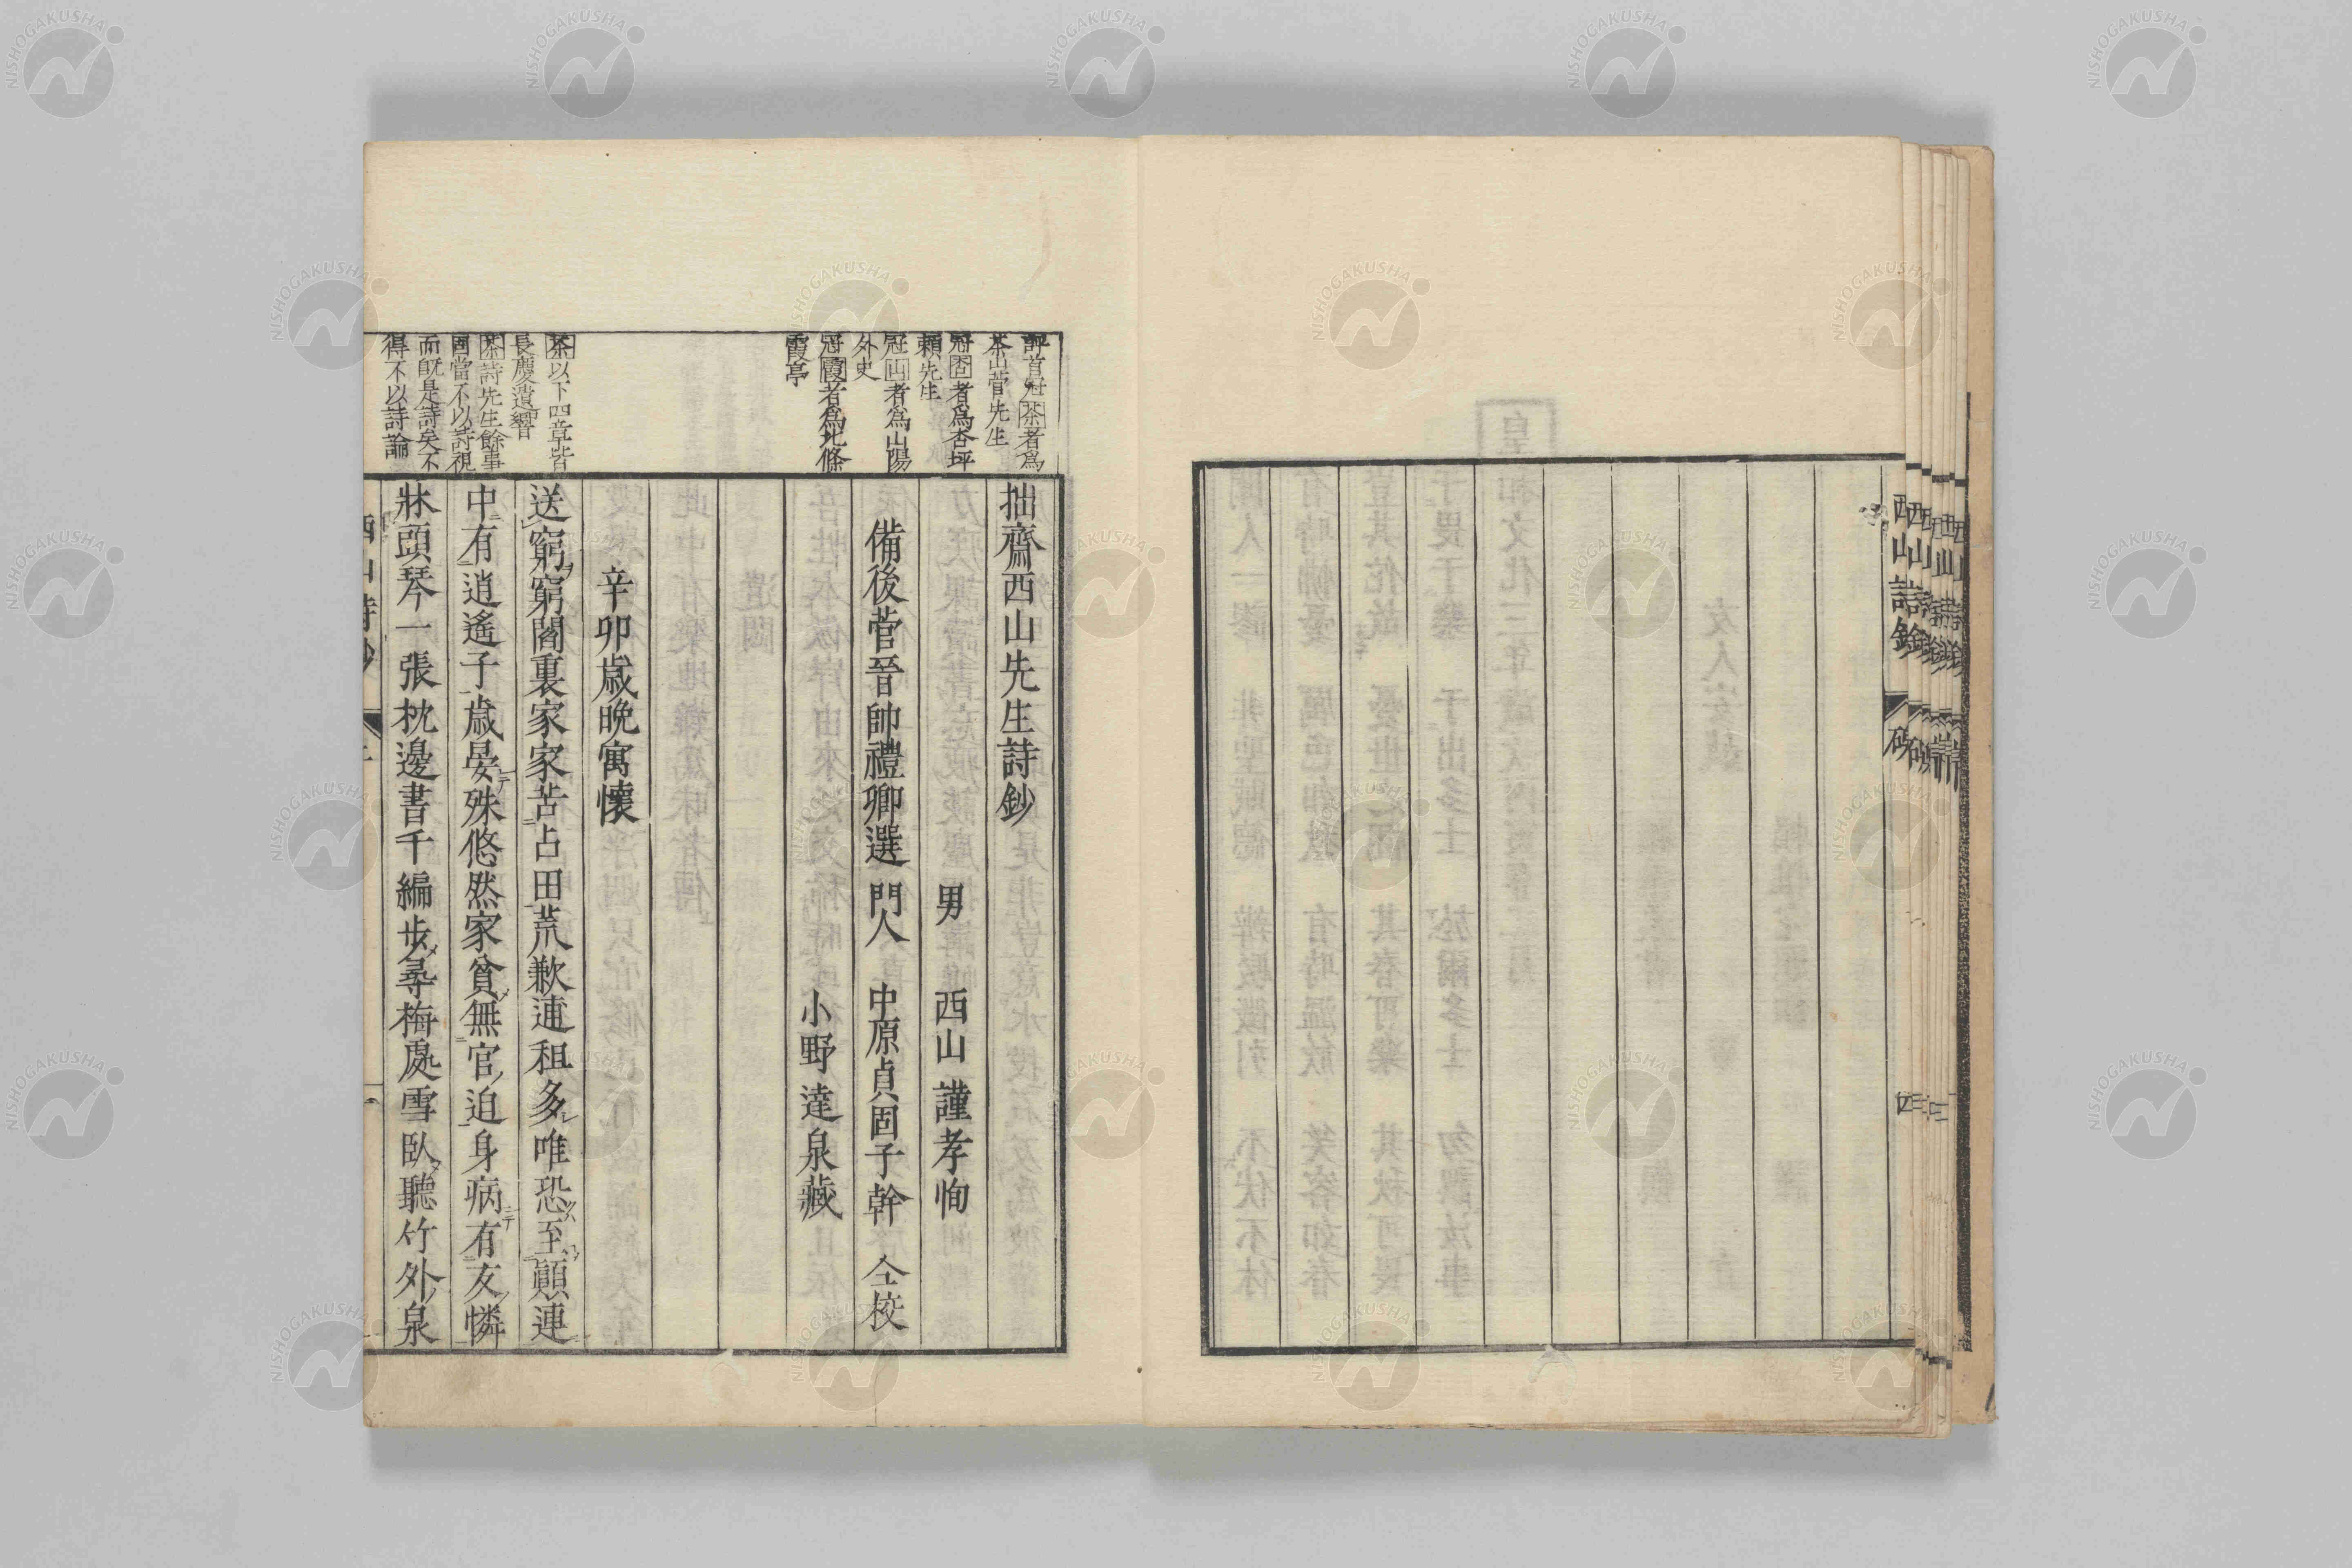 評首冠茶者爲
茶山菅先生
冠杏者爲杏坪
賴先生
冠山者爲山陽
外史
冠霞者爲北條
霞亭
拙齋西山先生詩鈔
男 西山謹孝恂
備後菅晉帥禮卿選 門人 中原貞固子幹 仝校
小野達泉藏
辛卯歲晩寓懷
茶以下四章皆
長慶遺響
茶詩先生餘事
固當不以詩視
而旣是詩矣不
得不以詩論
送窮窮閻裏家家苦占田荒歉逋租多唯恐至顚連
中有逍遙子歲晏殊悠然家貧無官迫身病有友憐
牀頭琴一張枕邊書千編步尋梅處雪臥聽竹外泉
西山詩鈔
西山詩鈔
四
NISHOGAKUSHA